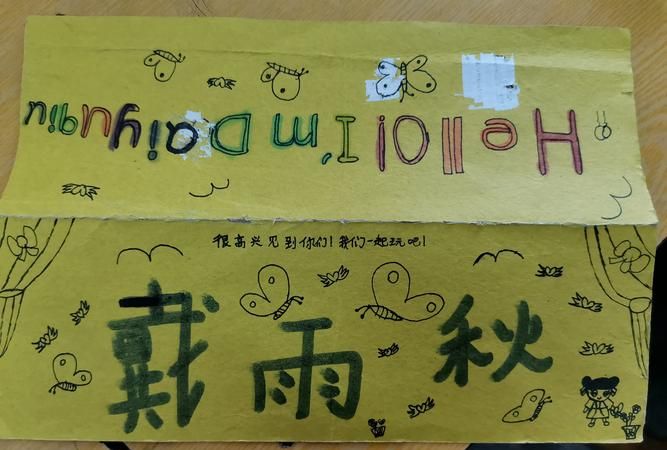 Hello! I'm Daiyuqiu
很高兴见到你们！我们一起玩吧！
戴雨秋